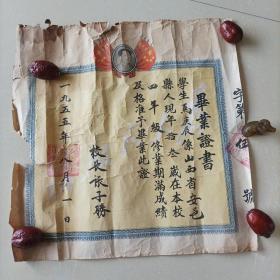 畢業證書
學生馬庚辰係山西省安邑
縣人現年拾叁歲在本校
四年級修業期滿成績
及格准予畢業此證
校長
一九五五年八月一日
字第 伍 號